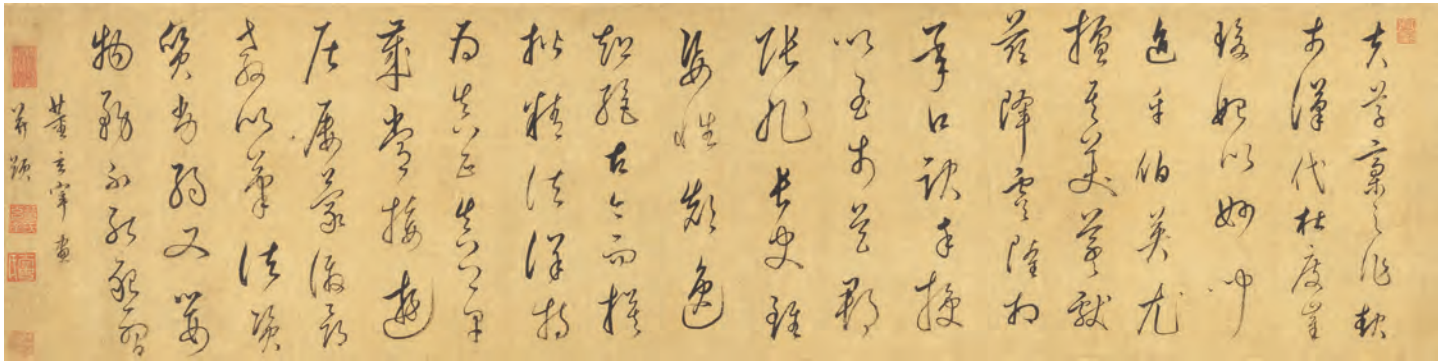 夫草稾之作起
於漢代杜度崔
瑗始以妙聞
迨乎伯英尤
擅其美羲獻
茲降虞陸相
承口訣手授
以至於吳郡
張旭長史雖
姿性顛逸
超絕古今而模
楷精法詳特
為真正真卿早
歲常接遊
居屢蒙激昂
教以筆法資
質劣弱又嬰
物務不能懇習
董玄宰畫
并題